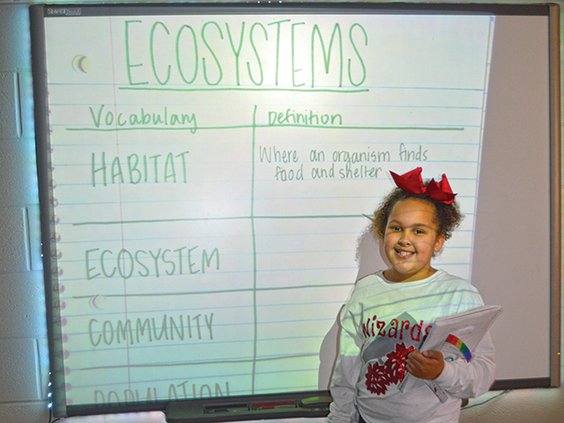 ECOSYSTEMS
Vocabulary Definition
HABITAT Where an organism finds
food and shelter
ECOSYSTEM
COMMUNITY
POPULATION
Wizards